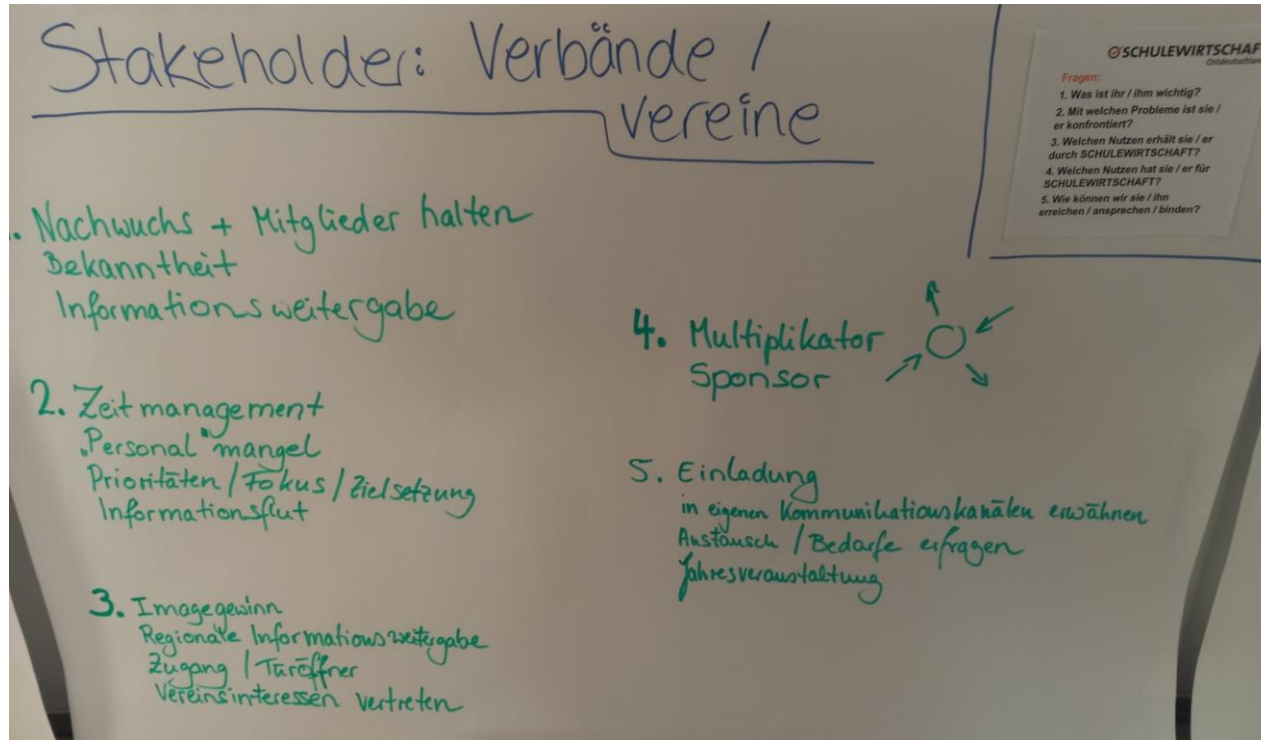 Stakeholder: Verbände /
Vereine
SCHULEWIRTSCHAF
Ostdeutschlan
Fragen:
1. Was ist ihr / ihm wichtig?
2. Mit welchen Probleme ist sie /
er konfrontiert?
3. Welchen Nutzen erhält sie / er
durch SCHULEWIRTSCHAFT?
4. Welchen Nutzen hat sie / er für
SCHULEWIRTSCHAFT?
5. Wie können wir sie / ihn
erreichen / ansprechen / binden?
. Nachwuchs + Mitglieder halten
Bekanntheit
Informationsweitergabe
2. Zeitmanagement
„Personal“mangel
Prioritäten / Fokus / Zielsetzung
Informationsflut
3. Imagegewinn
Regionale Informationsweitergabe
Zugang / Türöffner
Vereinsinteressen vertreten
4. Multiplikator
Sponsor
5. Einladung
in eigenen Kommunikationskanälen erwähnen
Austausch / Bedarfe erfragen
Jahresveranstaltung